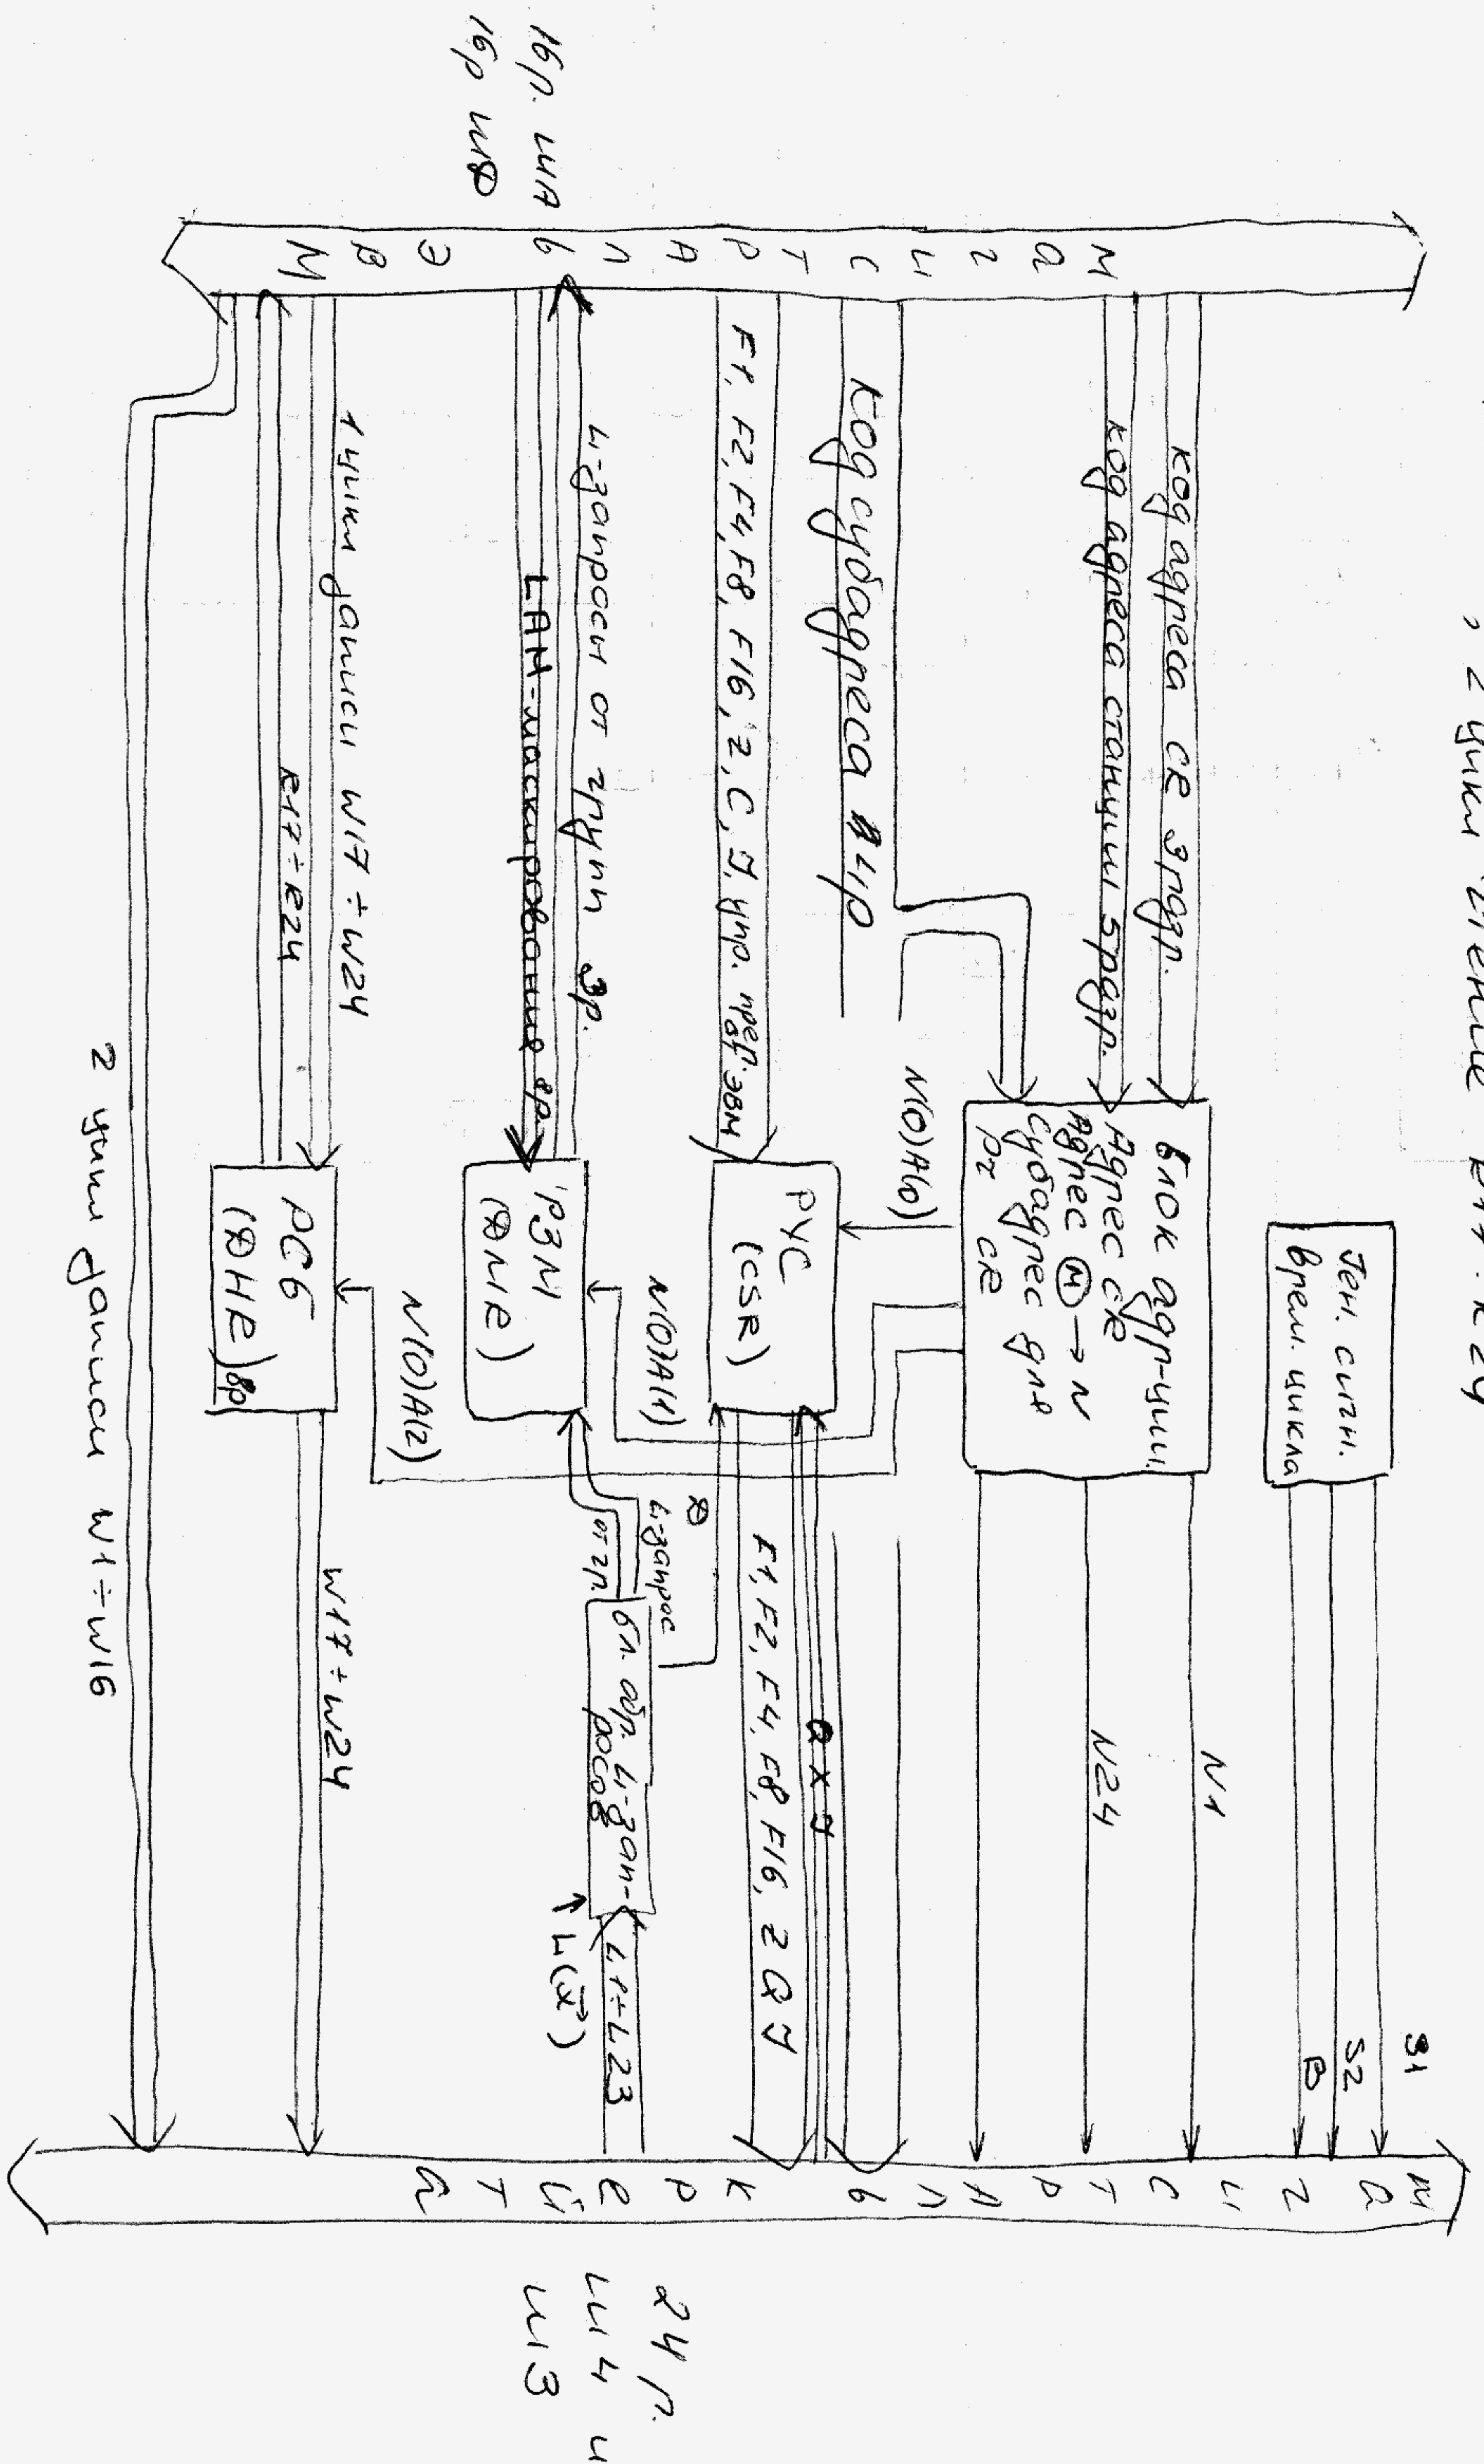 2 цикл чтение R17÷R24
16р. ША
16р ШД
МАГИСТРАЛЬ ЭВМ
код адреса CR 3 разр.
код адреса станции 5 разр.
код субадреса 4р
F1, F2, F4, F8, F16, Z, C, J, упр. прер. ЭВМ
L-запросы от групп 3р.
LAM-маскирование 8р.
1 цикл записи W17÷W24
R17÷R24
2 цикл записи W1÷W16
Ген. сигн.
врем. цикла
S1
S2
B
Блок адр-ции
Адрес CR
Адрес M → N
Субадрес для
рг CR
N1
N24
N(0)A(0)
РУС
(CSR)
N(0)A(1)
РЗМ
(DMR)
N(0)A(2)
РСБ
(DHR) 8р
F1, F2, F4, F8, F16, Z Q J
Q X J
D
L-запрос
от гр.
бл. обр. L-зап-
росов
L1÷L23
L(x̄)
W17÷W24
МАГИСТРАЛЬ КРЕЙТА
24р.
ШЧ и
ШЗ